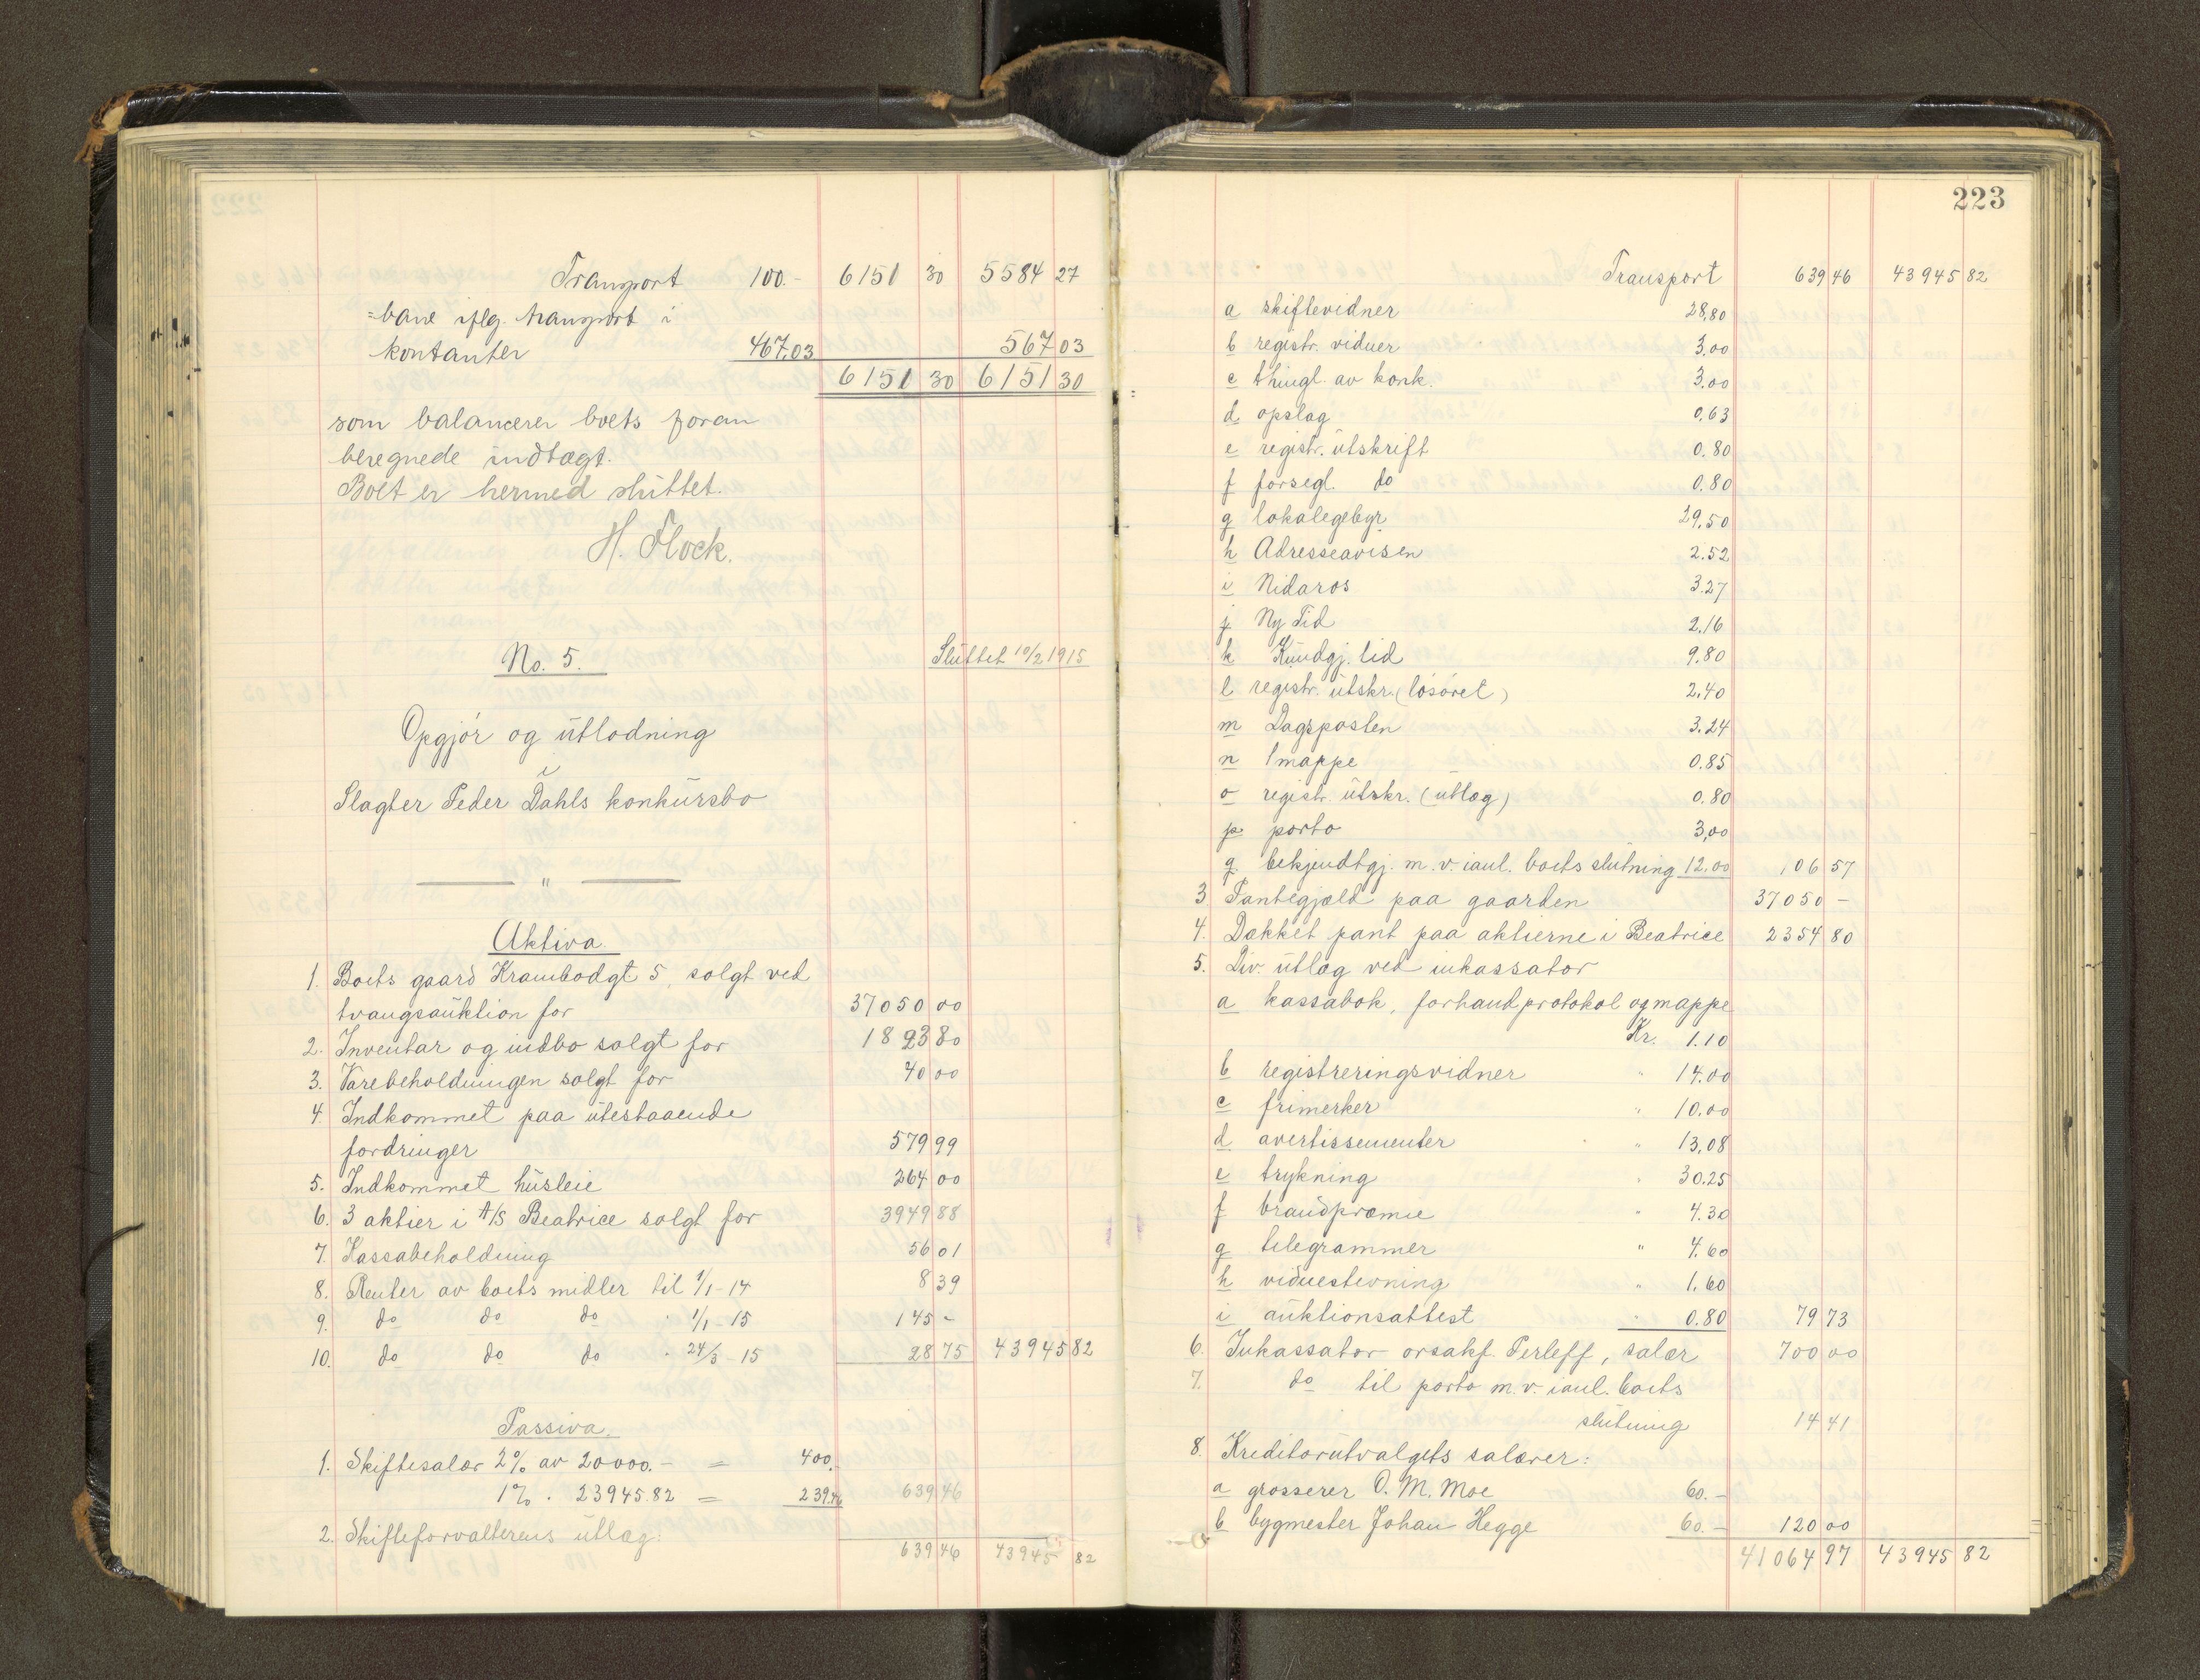 Transport 100.- 6151 30 5584 27
=bane iflg. transport i
kontanter 467,03 567 03
6151 30 6151 30
som balancerer boets foran
beregnede indtægt.
Boet er hermed sluttet.
H. Flock.
No. 5. Sluttet 10/2 1915
Opgjör og utlodning
i
Slagter Peder Dahls konkursbo
"
Aktiva.
1. Boets gaard Krambodgt 5, solgt ved
tvangsauktion for 37050 00
2. Inventar og indbo solgt for 1893 80
3. Varebeholdningen solgt for 40 00
4. Indkommet paa utestaaende
fordringer 579 99
5. Indkommet husleie 264 00
6. 3 aktier i A/S Beatrice solgt for 3949 88
7. Kassabeholdning 56 01
8. Renter av boets midler til 1/1-14 8 39
9. do do do " 1/1-15 145 -
10. do do do " 24/3-15 28 75 43945 82
Passiva.
1. Skiftesalær 2% av 20000.- = 400.
1% " 23945.82 = 239.46 639 46
2. Skifteforvalterens utlæg:
639 46 43945 82
223
Transport 639 46 43945 82
a skiftevidner 28,80
b registr. vidner 3,00
c thingl. av konk. 3,00
d opslag 0,63
e registr. utskrift 0.80
f forsegl. do 0.80
g lokalegebyr 29,50
h Adresseavisen 2.52
i Nidaros 3.27
j Ny Tid 2,16
k Kundgj. tid 9.80
l registr. utskr. (lösöret) 2,40
m Dagsposten 3.24
n 1 mappe 0.85
o registr. utskr. (utlæg) 0.80
p porto 3,00
q bekjendtgj. m.v. ianl. boets slutning 12,00 106 57
3. Pantegjæld paa gaarden 37050 -
4. Dækket pant paa aktierne i Beatrice 2354 80
5. Div. utlæg ved inkassator
a kassabok, forhandprotokol og mappe
Kr. 1.10
b registreringsvidner " 14.00
c frimerker " 10,00
d avertissementer " 13,08
e trykning " 30.25
f brandpræmie " 4.30
g telegrammer " 4.60
h vidnestevning " 1,60
i auktionsattest " 0.80 79 73
6. Inkassator orsakf. Perleff, salær 700 00
7. do til porto m.v. ianl. boets
slutning 14 41
8. Kreditorutvalgets salærer:
a grosserer O. M. Moe 60.-
b bygmester Johan Hegge 60.- 120 00
41064 97 43945 82